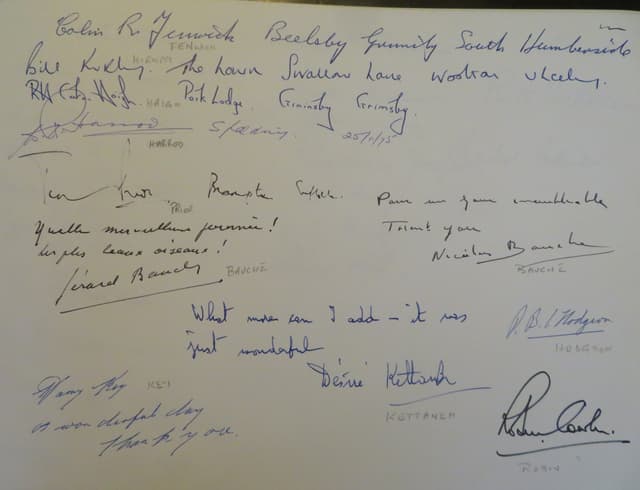 Colin R. Fenwick Beelsby Grimsby South Humberside
FENWICK
Bill Kirkby. The Lawn Swallow Lane Wootton Ulceby.
Haigh. Park Lodge. Grainsby Grimsby.
HAIGH
Harrod Spalding. 25/1/75
HARROD
Prior Brampton Suffolk.
PRIOR
Pour un jour inoubliable
Thank you
Nicolas Bauche
BAUCHÉ
Quelle merveilleuse journée!
les plus beaux oiseaux!
Gérard Bauché
BAUCHÉ
What more can I add - it was
just wonderful
Désiré Kettaneh
KETTANEH
P.B.L Hodgson
HODGSON
Key KEY
a wonderful day
thank you.
Robin
ROBIN